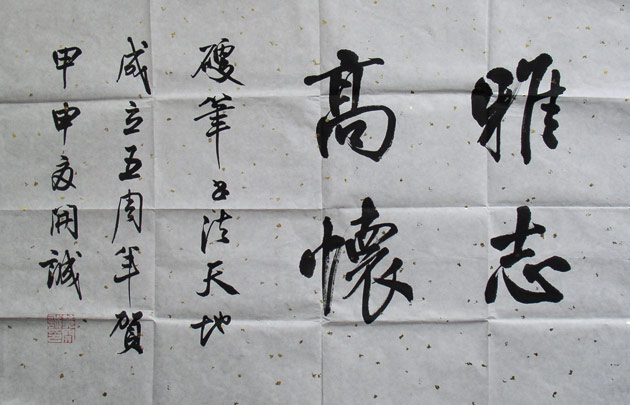 雅志
高懷
硬筆书法天地
成立五周年賀
甲申夏開誠